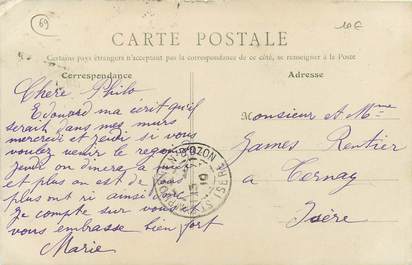 69
10 €
CARTE POSTALE
Certains pays étrangers n'acceptant pas la correspondance de ce côté, se renseigner à la Poste
Correspondance
Adresse
Chere Philo
Edouard ma écrit qu'il
serait dans mes murs
mercredi et jeudi si vous
voulez venir le
Jeudi on dinera
et plus on est de
plus on rit ainsi
Je compte sur vous
vous embrasse bien fort
Marie
Monsieur et Mme
James Rentier
a Cernay
Isère